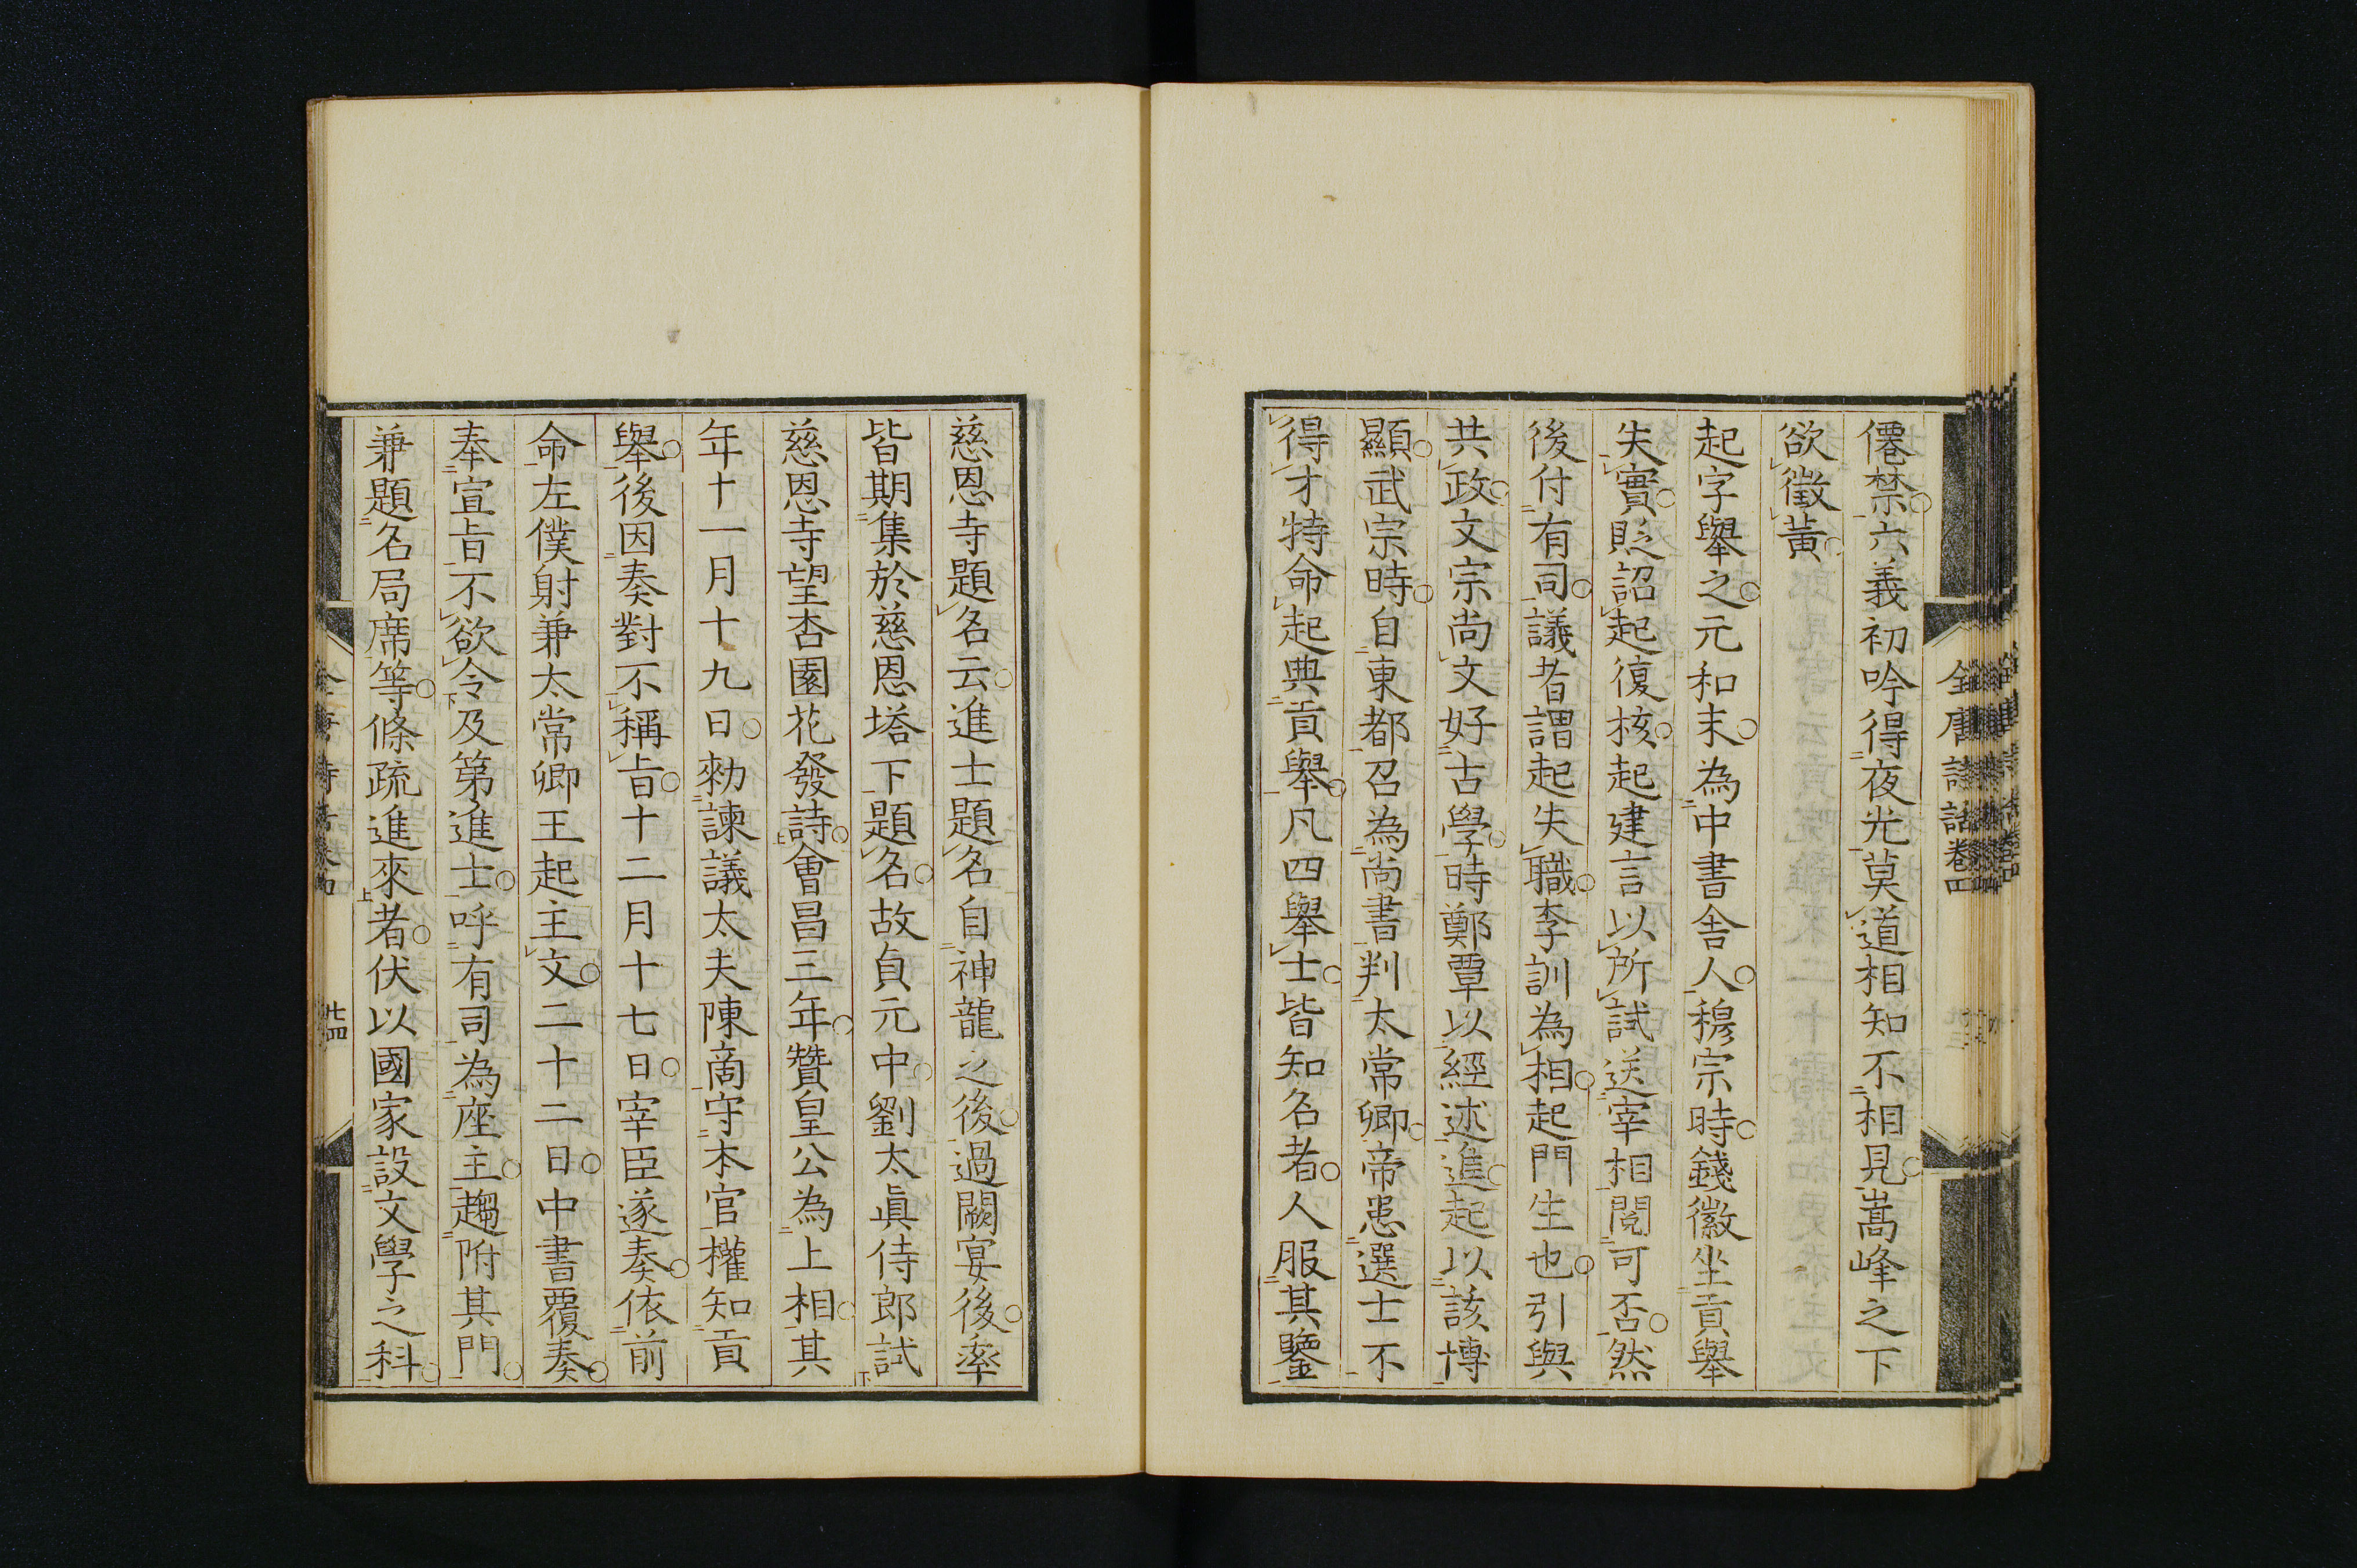 僊禁六義初吟得夜光莫道相知不相見嵩峰之下
欲徵黃
起字舉之元和末為中書舍人穆宗時錢徽坐貢舉
失實貶詔起復核起建言以所試送宰相閱可否然
後付有司議者謂起失職李訓為相起門生也引與
共政文宗尚文好古學時鄭覃以經述進起以該博
顯武宗時自東都召為尚書判太常卿帝患選士不
得才特命起典貢舉凡四舉士皆知名者人服其鑒
全唐詩話卷四
慈恩寺題名云進士題名自神龍之後過闕宴後率
皆期集於慈恩塔下題名故貞元中劉太眞侍郎試
慈恩寺望杏園花發詩會昌三年贊皇公為上相其
年十一月十九日勑諫議太夫陳啇守本官權知貢
舉後因奏對不稱旨十二月十七日宰臣遂奏依前
命左僕射兼太常卿王起主文二十二日中書覆奏
奉宣旨不欲令及第進士呼有司為座主趨附其門
兼題名局席等條疏進來者伏以國家設文學之科